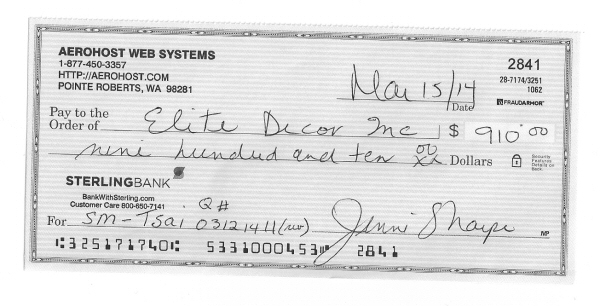 AEROHOST WEB SYSTEMS
1-877-450-3357
HTTP://AEROHOST.COM
POINTE ROBERTS, WA 98281
2841
28-7174/3251
1062
Mar 15/14
Date
FRAUDARMOR
Pay to the
Order of Elite Decor Inc $ 910.00
nine hundred and ten 00/xx Dollars
Security
Features
Details on
Back
STERLINGBANK
BankWithSterling.com
Customer Care 800-650-7141
Q#
For SM-Tsai 03121411 (rev) Jenni Sharpe
MP
325171740 5331000453 2841